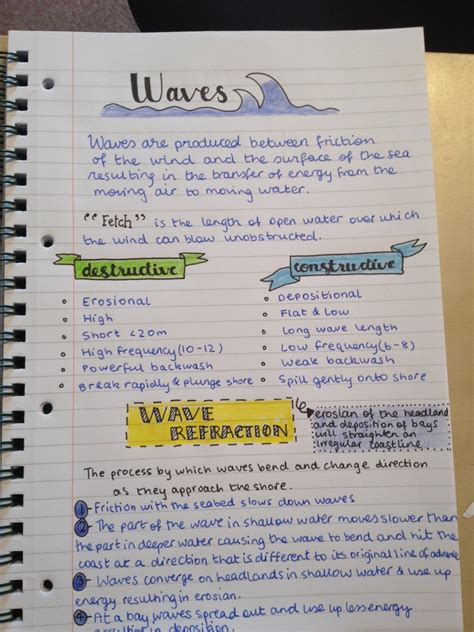 Waves
Waves are produced between friction
of the wind and the surface of the sea
resulting in the transfer of energy from the
moving air to moving water.
"Fetch" is the length of open water over which
the wind can blow unobstructed.
destructive
• Erosional
• High
• Short <20m
• High frequency (10-12)
• Powerful backwash
• Break rapidly & plunge shore
constructive
• Depositional
• Flat & Low
• Long wave length
• Low frequency (6-8)
• Weak backwash
• Spill gently onto shore
WAVE
REFRACTION
erosian of the headland
and deposition of bays
will straighten an
irregular coastline
The process by which waves bend and change direction
as they approach the shore.
1 - Friction with the seabed slows down waves
2 - The part of the wave in shallow water moves slower than
the part in deeper water causing the wave to bend and hit the
coast at a direction that is different to its original line of advance
3 - Waves converge on headlands in shallow water & use up
energy resulting in erosian.
4 - At a bay waves spread out and use up less energy
resulting in deposition.